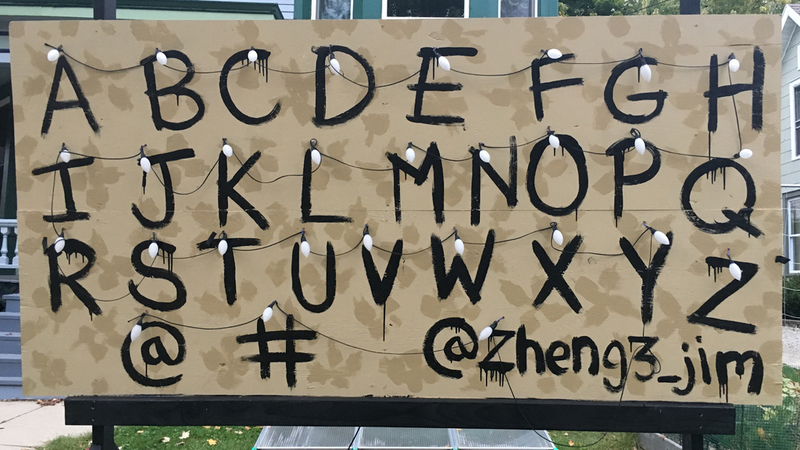 A B C D E F G H
I J K L M N O P Q
R S T U V W X Y Z
@ # @zheng3_jim